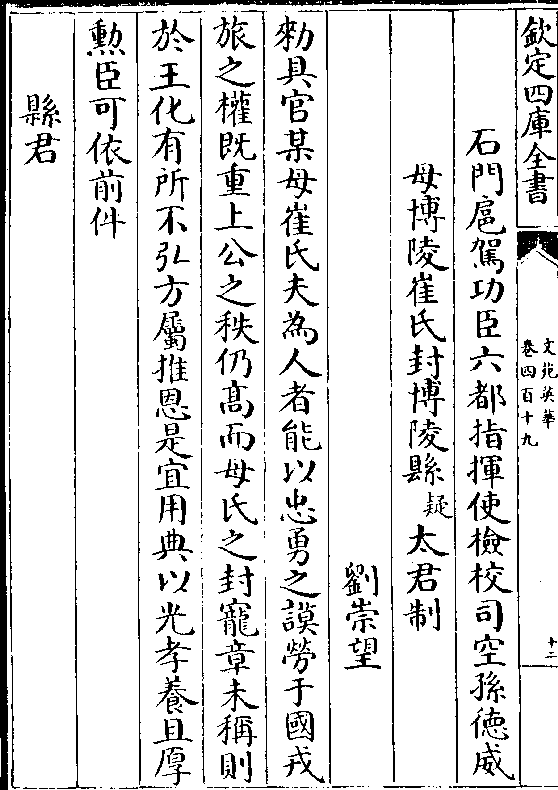 欽定四庫全書
文苑英華
卷四百十九
十二
石門扈駕功臣六都指揮使檢校司空孫德威
母博陵崔氏封博陵縣疑太君制
劉崇望
勑具官某母崔氏夫為人者能以忠勇之謨勞于國戎
旅之權既重上公之秩仍髙而母氏之封寵章未稱則
於王化有所不弘方屬推恩是宜用典以光孝養且厚
勲臣可依前件
縣君